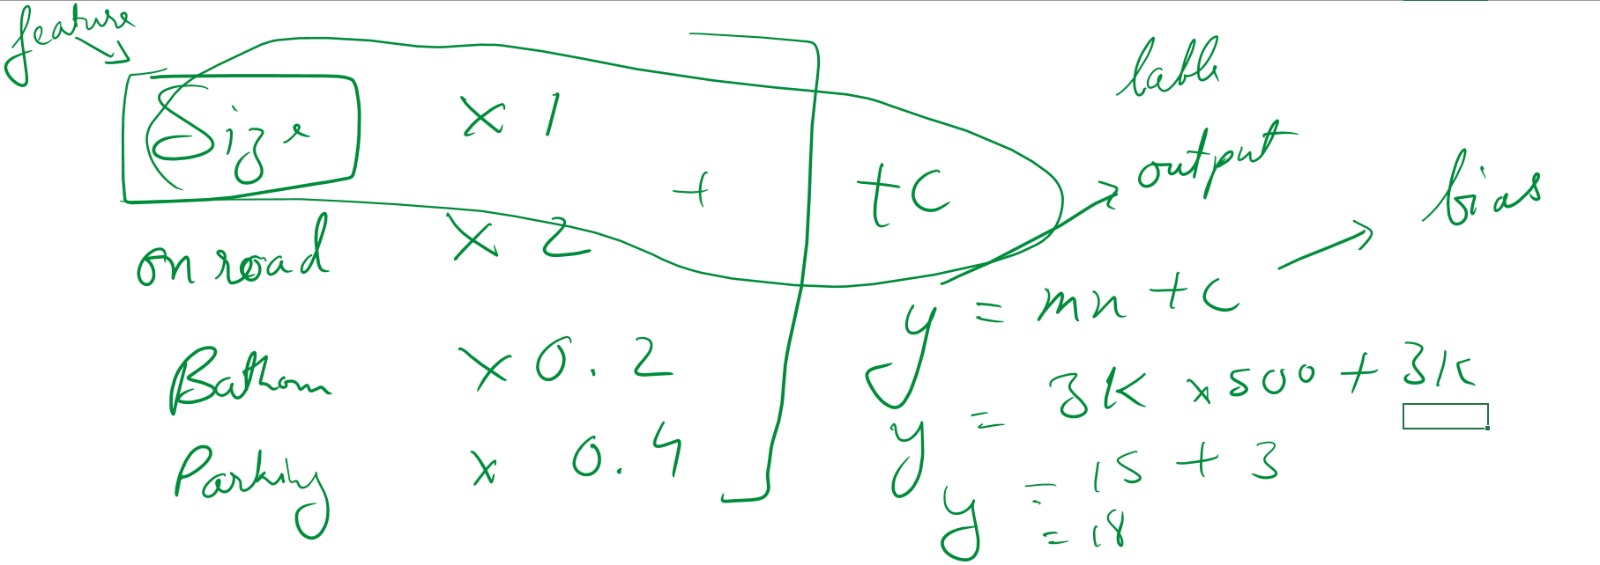 feature
Size × 1
+
+c
on road × 2
Bathom × 0.2
Parking × 0.4
lable
output
bias
y = mn + c
y = 3K × 500 + 3K
y = 15 + 3
= 18